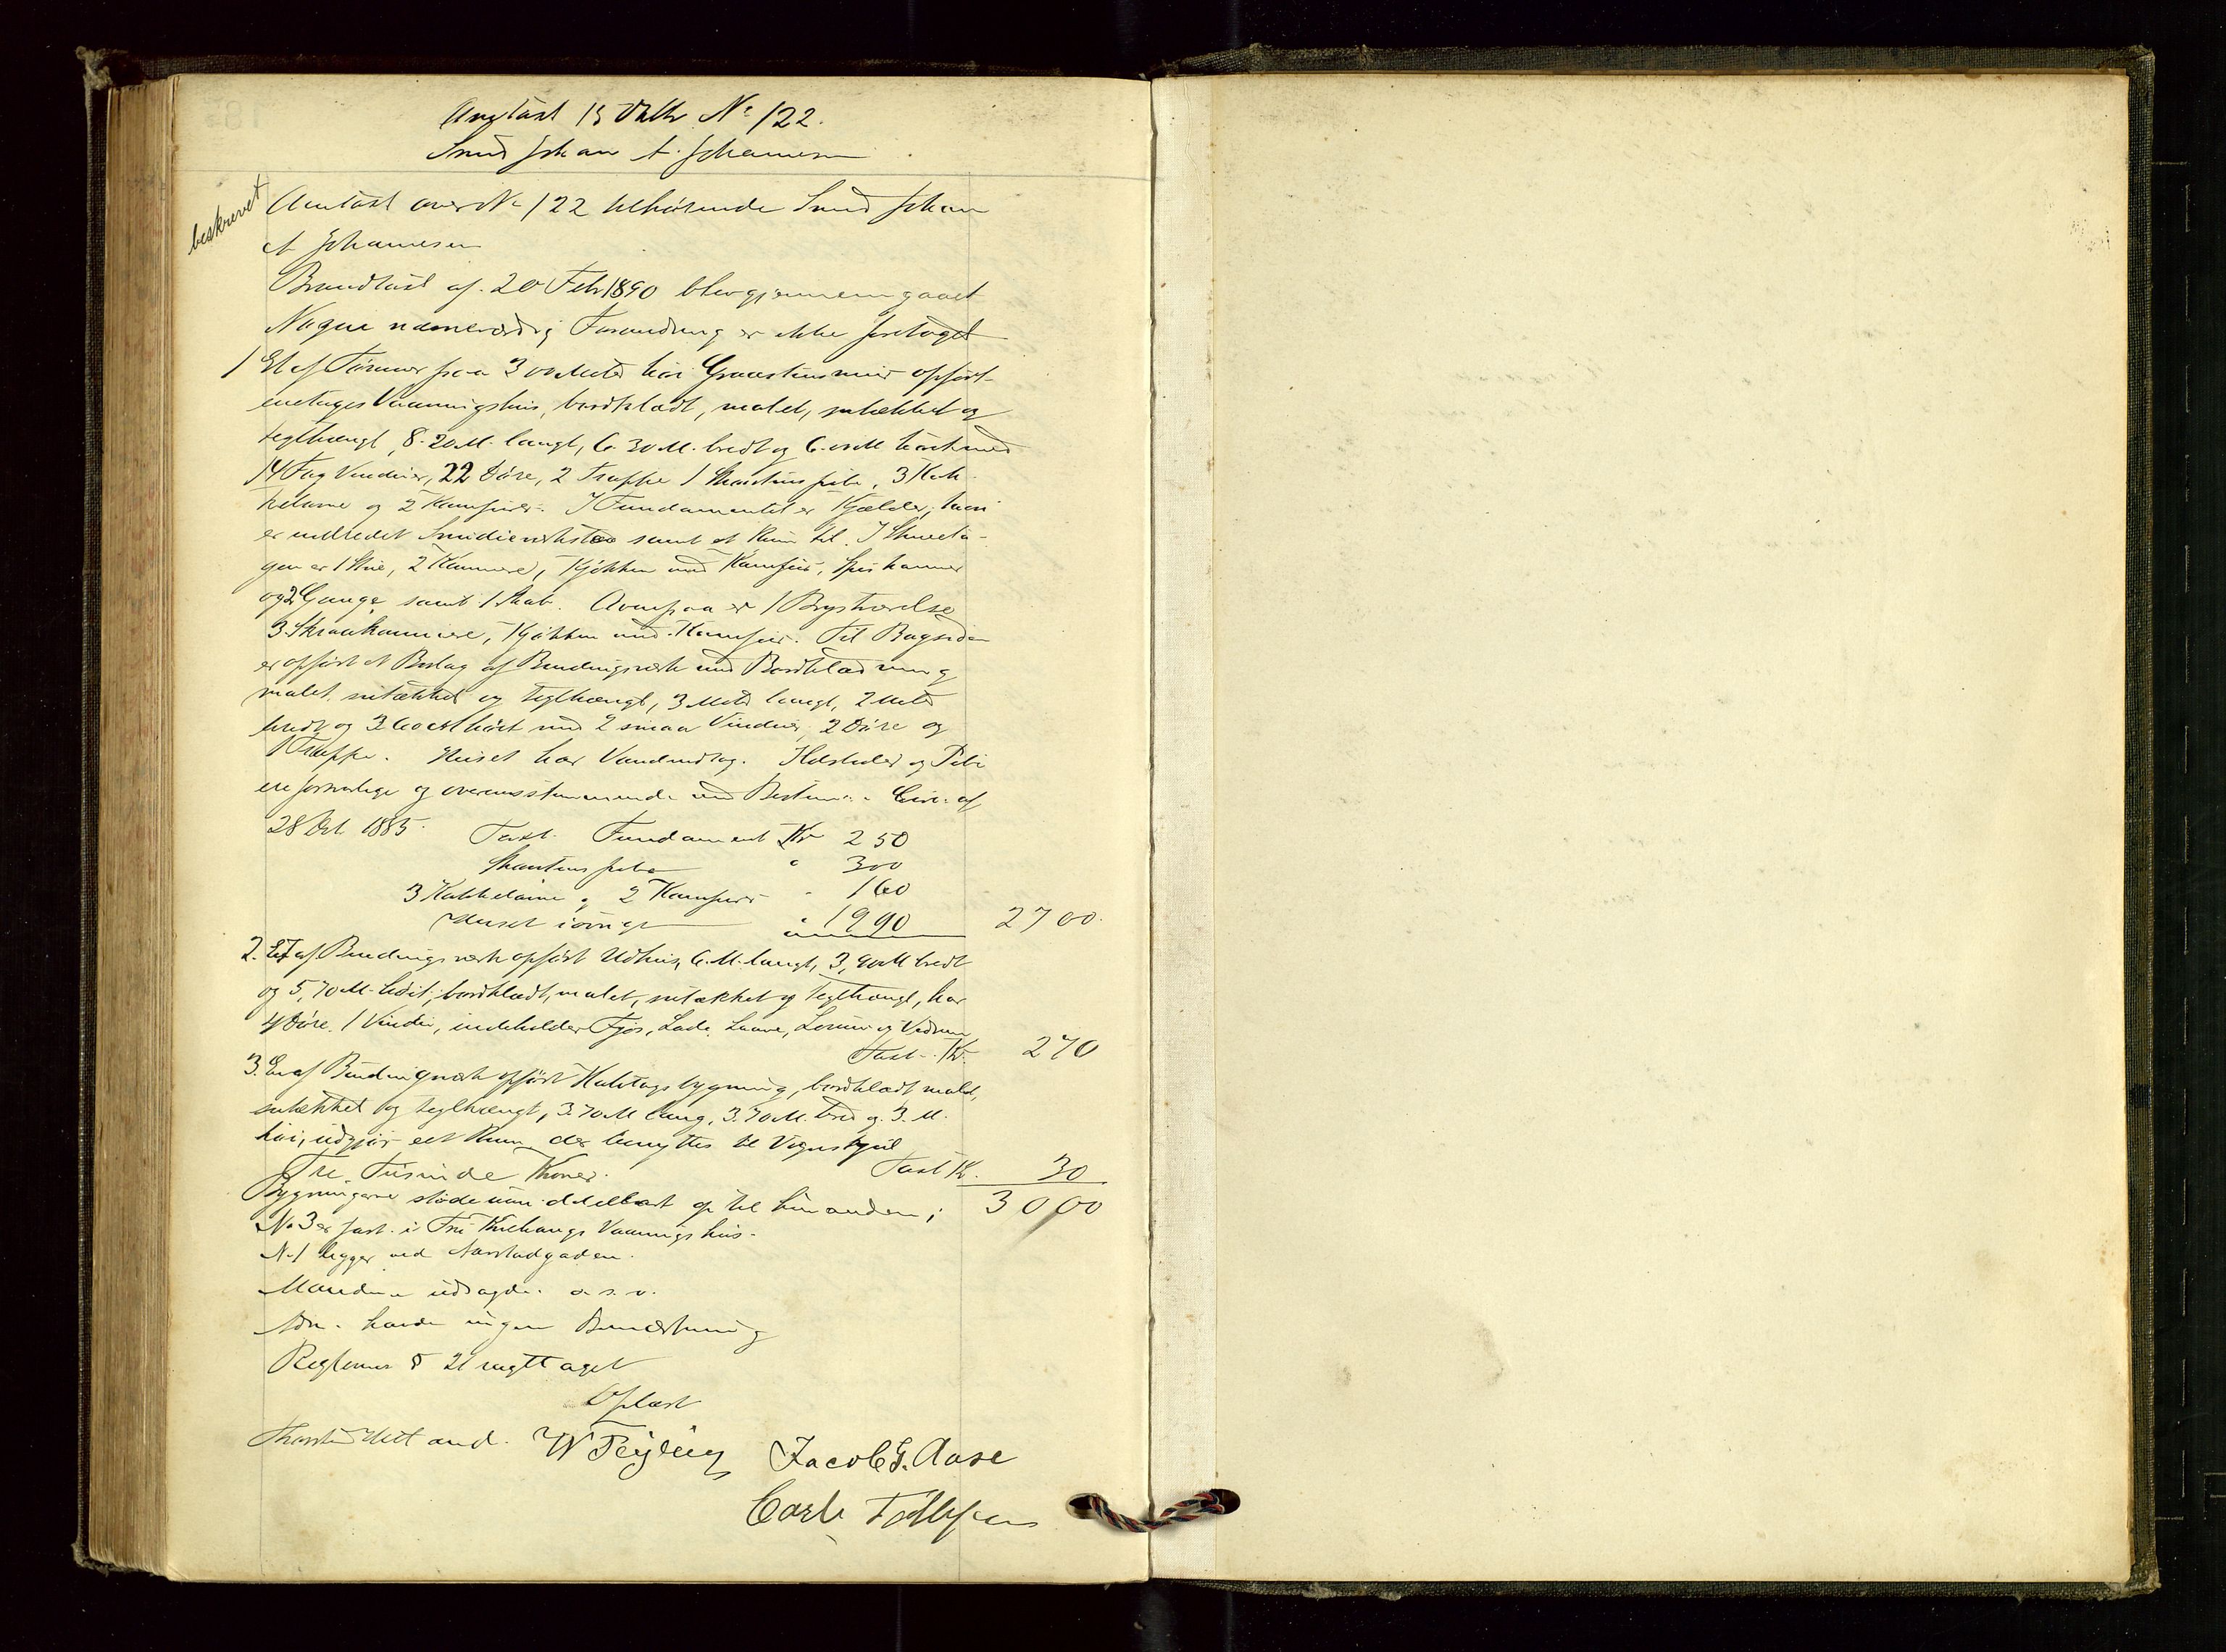 Omtaxt 15 Oktbr No 122.
Smed Johan A. Johannesen
beskrevet
Omtaxt over No 122 tilhørende Smed Johan
A Johannesen
Brandtaxt af 20 Febr 1890 blev gjennemgaaet
Nogen nævneværdig Forandring er ikke foretaget
1 Et af Tømmer paa 3 00 Meter høi Graastensmur opført
enetages Vaaningshus, bordklædt, malet, sutækket og
teglhængt, 8.20 M. langt, 6.30 M. bredt og 6.00 M høit med
14 Fag Vinduer, 22 Døre, 2 Trapper 1 Skorstenspibe, 3 Kak-
kelovne og 2 Komfurer. I Fundamentet er Kjælder, hvori
er indredet Smedieverksted samt et Rum til. I Stueeta-
gen er 1 Stue, 2 Kammere, Kjøkken med Komfur, Spiskammer
og 2 Gange samt 1 Skab. Ovenpaa er 1 Brystværelse
3 Skraakammere, Kjøkken med Komfur. Til Bagsiden
er opført et Bislag af Bindingsverk med Bordklædning
malet, sutækket og teglhængt, 3 Meter langt, 2 Meter
bredt og 3 60 M høit med 2 smaa Vinduer, 2 Døre og
1 Trappe. Huset har Vandindlæg. Ildsteder og Pibe
ere forsvarlige og overensstemmende med Bestem. i Circ. af
28 Oct 1885. Taxt. Fundament Kr 250
Skorstenspibe " 300
3 Kakkelovne og 2 Komfurer " 160
Huset iøvrigt " 1990 2700.
2. Et af Bindingsverk opført Udhus, 6. M. langt, 3,90 M bredt
og 5,70 M. høit, bordklædt, malet, sutækket og teglhængt, har
4 Døre. 1 Vindu, indeholder Fjøs, Lade, Laave, Lorum og Vedrum
Taxt Kr. 270
3. En af Bindingsverk opført Halvtagsbygning, bordklædt malet,
sutækket og teglhængt, 3.70 M lang, 3.70 M. bred og 3. M.
høi, udgjør eet Rum der benyttes til Vognskjul
Taxt Kr. 30
Tre Tusinde Kroner. 3000
Bygningerne støde umiddelbart op til hinanden;
No 3 er fast i Fru Vaaningshus.
No 1 ligger ved
Mændene udsagde. o. s. v.
havde ingen Bemærkning
Reglernes § 21 iagttaget
Oplæst
W Jacob G. Aase
Carl Tollefsen